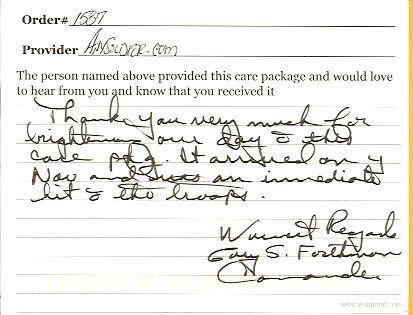 Order# 1537
Provider AnySoldier.com
The person named above provided this care package and would love
to hear from you and know that you received it
Thank you very much for
brightening our day c̄ this
care pkg. It arrived on 4
Nov and was an immediate
hit c̄ the troops.
Warmest Regards
Gary S. Forthman
Commander
www.vistaprint.com